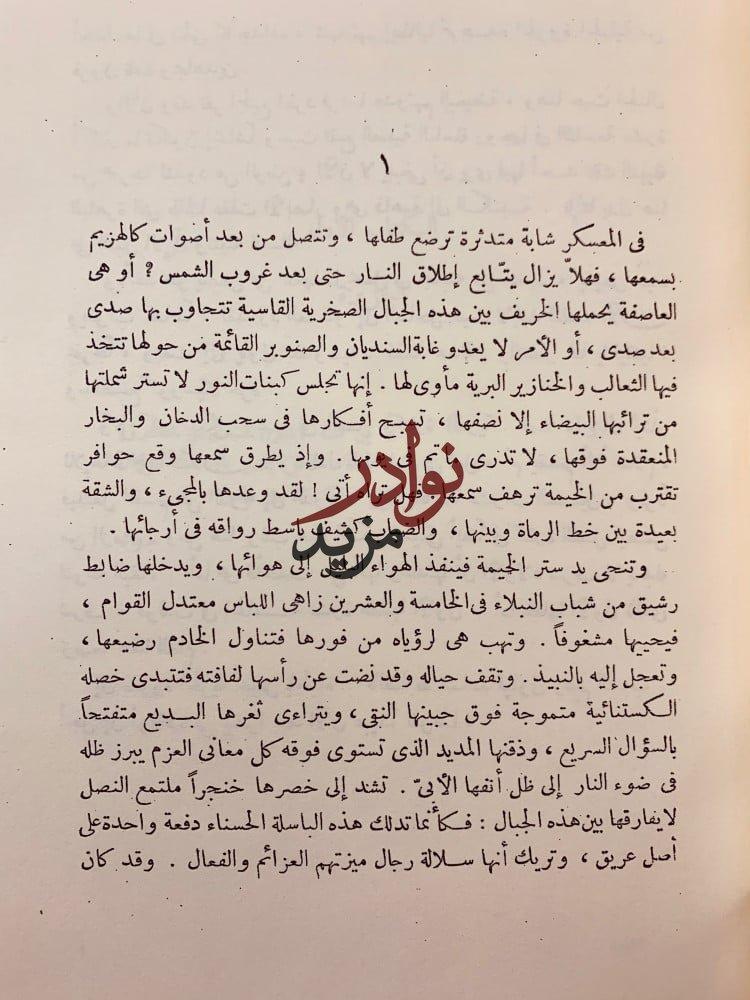 ١
فى المعسكر شابة متدثرة ترضع طفلها ، وتتصل من بعد أصوات كالهزيم
بسمعها ، فهلاّ يزال يتّابع إطلاق النار حتى بعد غروب الشمس ؟ أو هى
العاصفة يحملها الخريف بين هذه الجبال الصخرية القاسية تتجاوب بها صدى
بعد صدى ، أو الأمر لا يعدو غابة السنديان والصنوبر القائمة من حولها تتخذ
فيها الثعالب والخنازير البرية مأوى لها . إنها تجلس كبنات النور لا تستر شملتها
من ترائبها البيضاء إلا نصفها ، تسبح أفكارها فى سحب الدخان والبخار
المنعقدة فوقها ، لا تدرى ما تم فى يومها . وإذ يطرق سمعها وقع حوافر
تقترب من الخيمة ترهف سمعها . فهل تراه أتى ! لقد وعدها بالمجىء ، والشقة
بعيدة بين خط الرماة وبينها ، والضباب كثيف باسط رواقه فى أرجائها .
وتنحى يد ستر الخيمة فينفذ الهواء إلى هوائها ، ويدخلها ضابط
رشيق من شباب النبلاء فى الخامسة والعشرين زاهى اللباس معتدل القوام ،
فيحييها مشغوفاً . وتهب هى لرؤياه من فورها فتناول الخادم رضيعها ،
وتعجل إليه بالنبيذ . وتقف حياله وقد نضت عن رأسها لفافته فتتبدى خصله
الكستنائية متموجة فوق جبينها النقى ، ويتراءى ثغرها البديع متفتحاً
بالسؤال السريع ، وذقنها المديد الذى تستوى فوقه كل معانى العزم يبرز ظله
فى ضوء النار إلى ظل أنفها الأبىّ . تشد إلى خصرها خنجراً ملتمع النصل
لا يفارقها بين هذه الجبال : فكأنما تدلك هذه الباسلة الحسناء دفعة واحدة على
أصل عريق ، وتريك أنها سلالة رجال ميزتهم العزائم والفعال . وقد كان
نوادر
مزيد